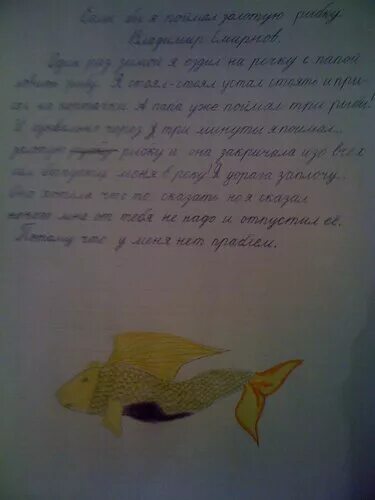 Если бы я поймал золотую рыбку
Владимир Смирнов.
Один раз зимой я ездил на речку с папой
ловить рыбу. Я стоял-стоял устал стоять и при-
сь на корточки. А папа уже поймал три рыбы!
И буквально через три минуты я поймал..
золотую рыбку и она закричала изо всех
сил Отпусти меня в реку! Я дорого заплочу..
Она хотела что то сказать но я сказал
ничего мне от тебя не надо и отпустил её.
Потому что у меня нет праблем.